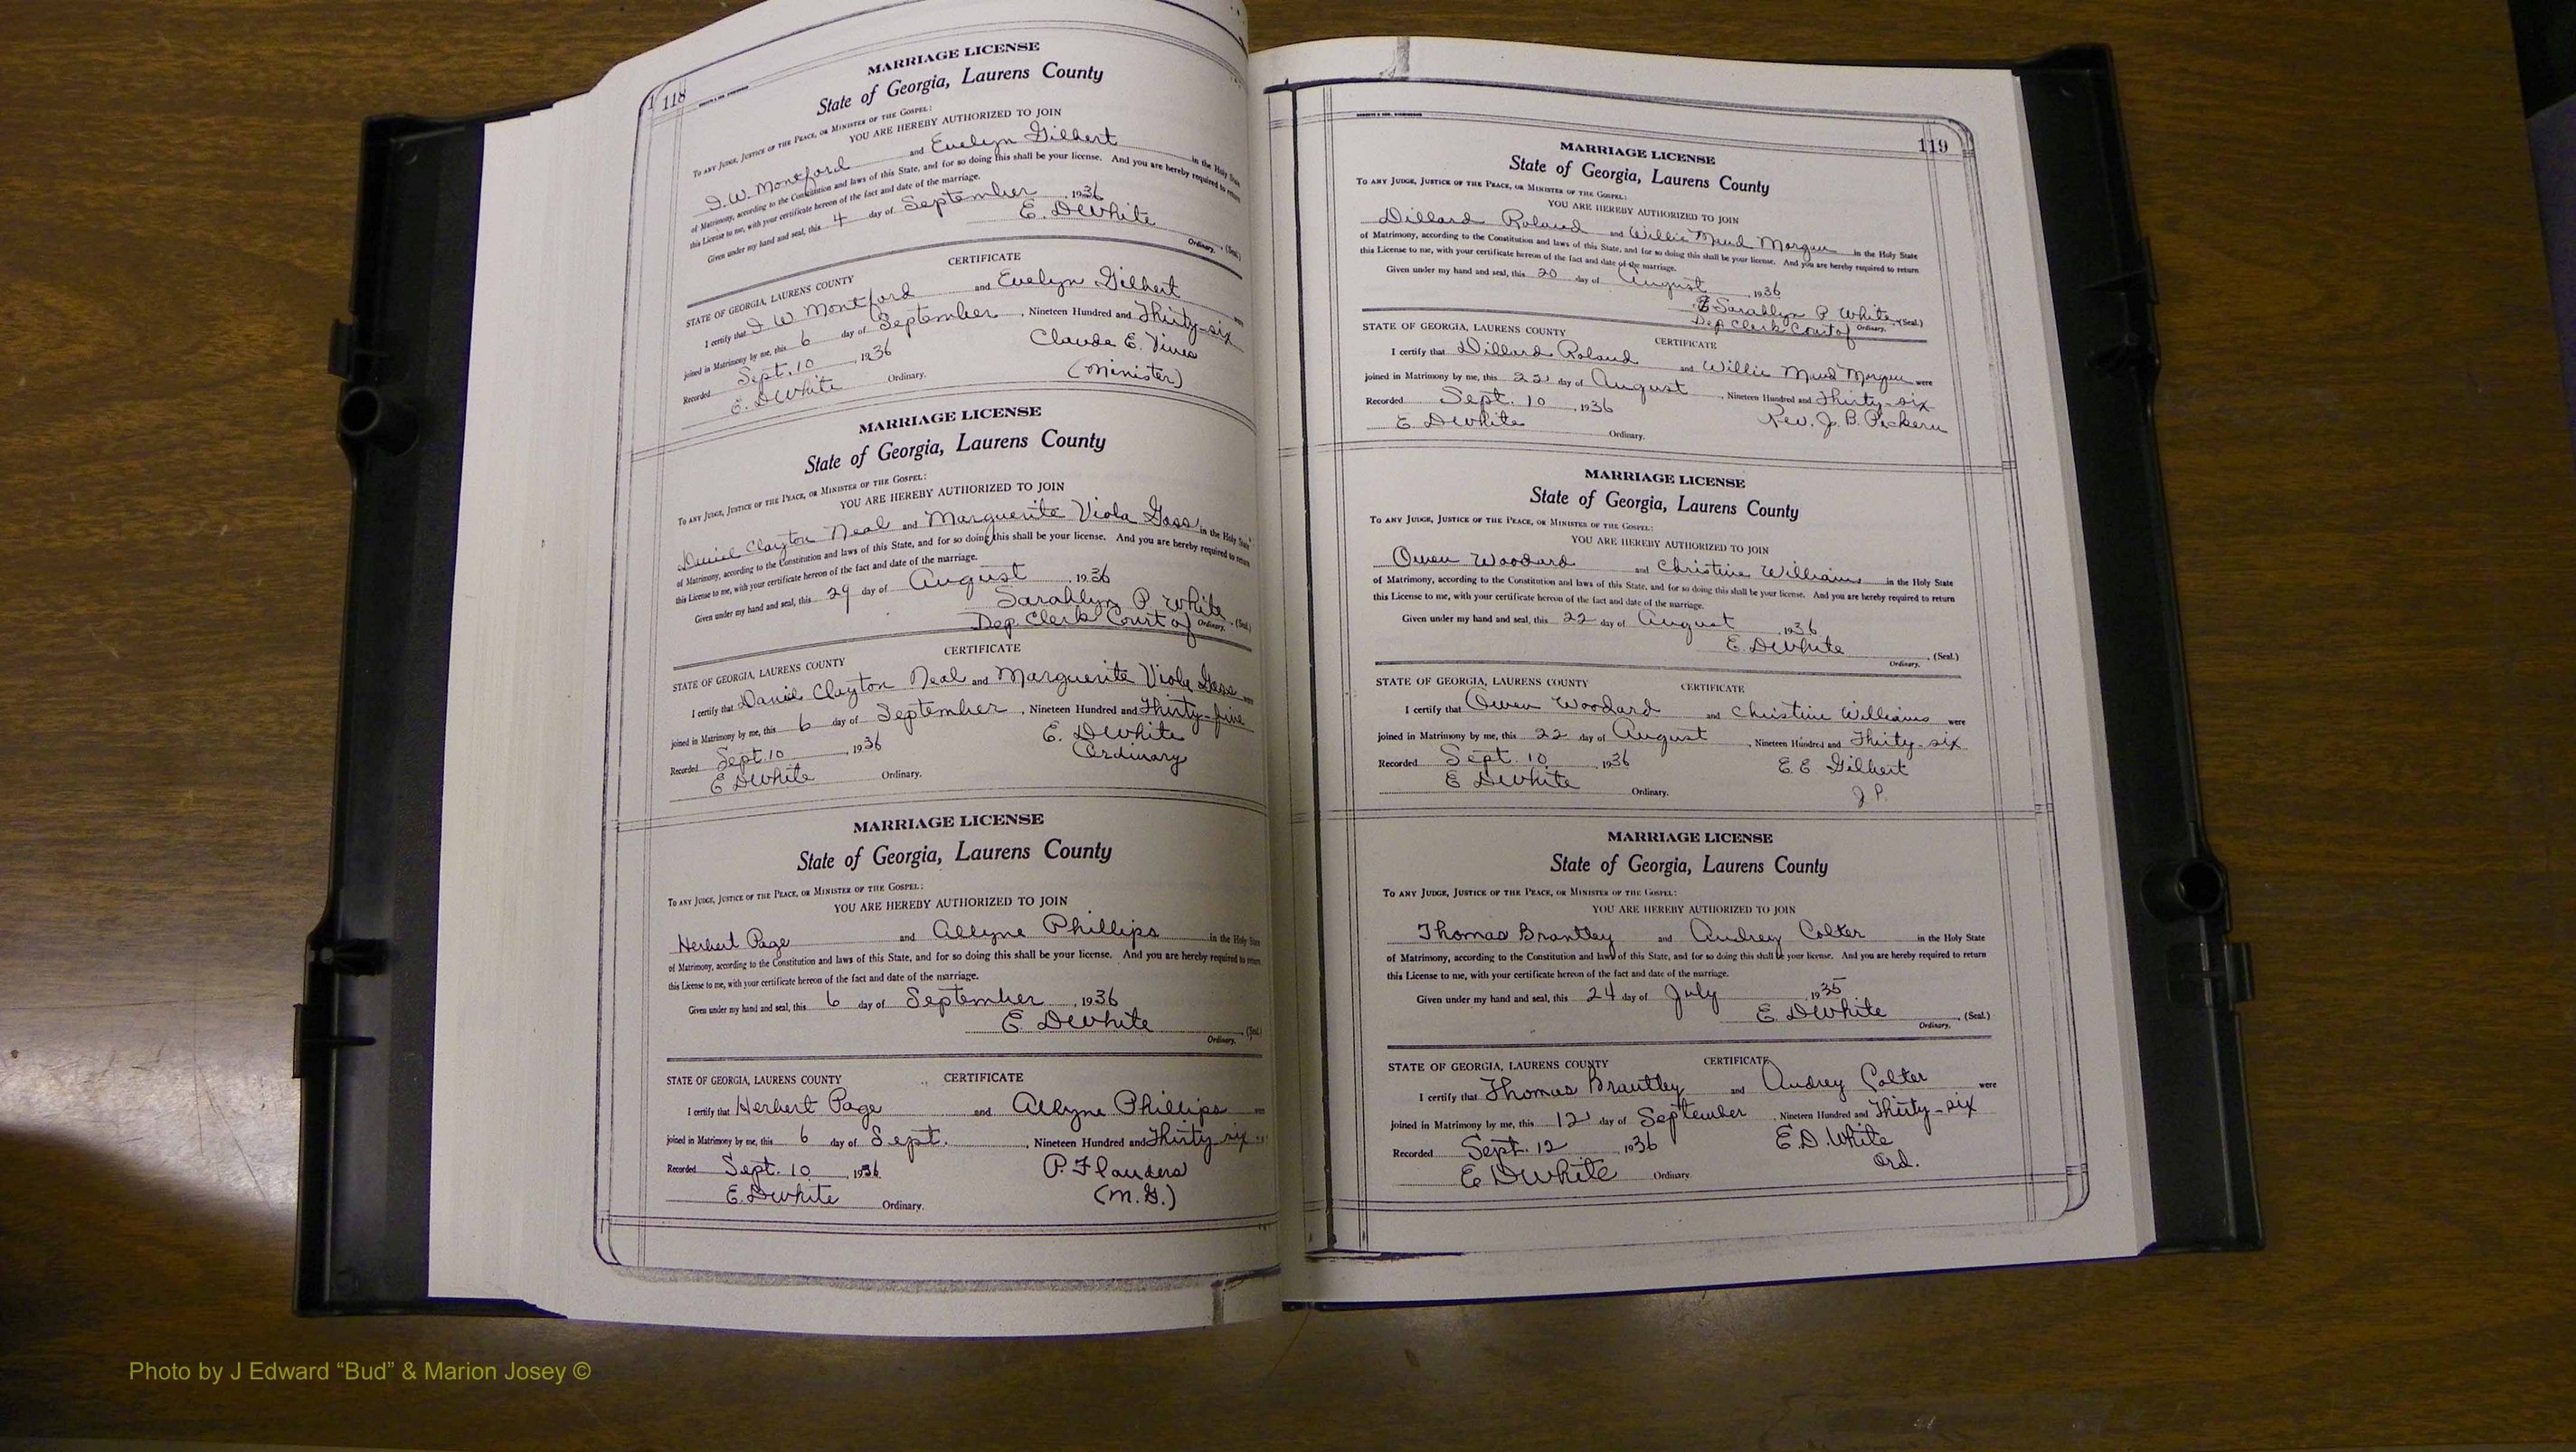 118
MARRIAGE LICENSE
State of Georgia, Laurens County
To any Judge, Justice of the Peace, or Minister of the Gospel:
YOU ARE HEREBY AUTHORIZED TO JOIN
I. W. Montford and Evelyn Gilbert in the Holy State
of Matrimony, according to the Constitution and laws of this State, and for so doing this shall be your license. And you are hereby required to return
this License to me, with your certificate hereon of the fact and date of the marriage.
Given under my hand and seal, this 4 day of September, 1936
E. D White
Ordinary. (Seal.)
CERTIFICATE
STATE OF GEORGIA, LAURENS COUNTY
I certify that I W Montford and Evelyn Gilbert were
joined in Matrimony by me, this 6 day of September, Nineteen Hundred and Thirty-six
Recorded Sept. 10, 1936 Claude E. Vines
E. D White Ordinary. (Minister)
MARRIAGE LICENSE
State of Georgia, Laurens County
To any Judge, Justice of the Peace, or Minister of the Gospel:
YOU ARE HEREBY AUTHORIZED TO JOIN
Daniel Clayton Neal and Marguerite Viola Goss in the Holy State
of Matrimony, according to the Constitution and laws of this State, and for so doing this shall be your license. And you are hereby required to return
this License to me, with your certificate hereon of the fact and date of the marriage.
Given under my hand and seal, this 29 day of August, 1936
Sarahlyn P White (Seal)
Dep. Clerk Court of Ordinary.
CERTIFICATE
STATE OF GEORGIA, LAURENS COUNTY
I certify that Daniel Clayton Neal and Marguerite Viola Goss were
joined in Matrimony by me, this 6 day of September, Nineteen Hundred and Thirty-five
Recorded Sept. 10, 1936 E. D White
E D White Ordinary. Ordinary
MARRIAGE LICENSE
State of Georgia, Laurens County
To any Judge, Justice of the Peace, or Minister of the Gospel:
YOU ARE HEREBY AUTHORIZED TO JOIN
Herbert Page and Allyne Phillips in the Holy State
of Matrimony, according to the Constitution and laws of this State, and for so doing this shall be your license. And you are hereby required to return
this License to me, with your certificate hereon of the fact and date of the marriage.
Given under my hand and seal, this 6 day of September, 1936
E. D White (Seal)
Ordinary.
STATE OF GEORGIA, LAURENS COUNTY CERTIFICATE
I certify that Herbert Page and Allyne Phillips were
joined in Matrimony by me, this 6 day of Sept., Nineteen Hundred and Thirty six
Recorded Sept. 10, 1936 P. Flanders
E. D White Ordinary. (M. G.)
119
MARRIAGE LICENSE
State of Georgia, Laurens County
To any Judge, Justice of the Peace, or Minister of the Gospel:
YOU ARE HEREBY AUTHORIZED TO JOIN
Dillard Roland and Willie Maud Morgan in the Holy State
of Matrimony, according to the Constitution and laws of this State, and for so doing this shall be your license. And you are hereby required to return
this License to me, with your certificate hereon of the fact and date of the marriage.
Given under my hand and seal, this 20 day of August, 1936
Sarahlyn P White (Seal.)
Dep Clerk Court of Ordinary.
STATE OF GEORGIA, LAURENS COUNTY CERTIFICATE
I certify that Dillard Roland and Willie Maud Morgan were
joined in Matrimony by me, this 22 day of August, Nineteen Hundred and Thirty-six
Recorded Sept. 10, 1936 Rev. J. B.
E D White Ordinary.
MARRIAGE LICENSE
State of Georgia, Laurens County
To any Judge, Justice of the Peace, or Minister of the Gospel:
YOU ARE HEREBY AUTHORIZED TO JOIN
Owen Woodard and Christine Williams in the Holy State
of Matrimony, according to the Constitution and laws of this State, and for so doing this shall be your license. And you are hereby required to return
this License to me, with your certificate hereon of the fact and date of the marriage.
Given under my hand and seal, this 22 day of August, 1936
E. D White (Seal.)
Ordinary.
STATE OF GEORGIA, LAURENS COUNTY CERTIFICATE
I certify that Owen Woodard and Christine Williams were
joined in Matrimony by me, this 22 day of August, Nineteen Hundred and Thirty-six
Recorded Sept. 10, 1936 E. E Gilbert
E D White Ordinary. J P.
MARRIAGE LICENSE
State of Georgia, Laurens County
To any Judge, Justice of the Peace, or Minister of the Gospel:
YOU ARE HEREBY AUTHORIZED TO JOIN
Thomas Brantley and Audrey Colter in the Holy State
of Matrimony, according to the Constitution and laws of this State, and for so doing this shall be your license. And you are hereby required to return
this License to me, with your certificate hereon of the fact and date of the marriage.
Given under my hand and seal, this 24 day of July, 1935
E. D White (Seal.)
Ordinary.
STATE OF GEORGIA, LAURENS COUNTY CERTIFICATE
I certify that Thomas Brantley and Audrey Colter were
joined in Matrimony by me, this 12 day of September, Nineteen Hundred and Thirty-six
Recorded Sept. 12, 1936 E. D. White
E D White Ordinary. Ord.
Photo by J Edward “Bud” & Marion Josey ©